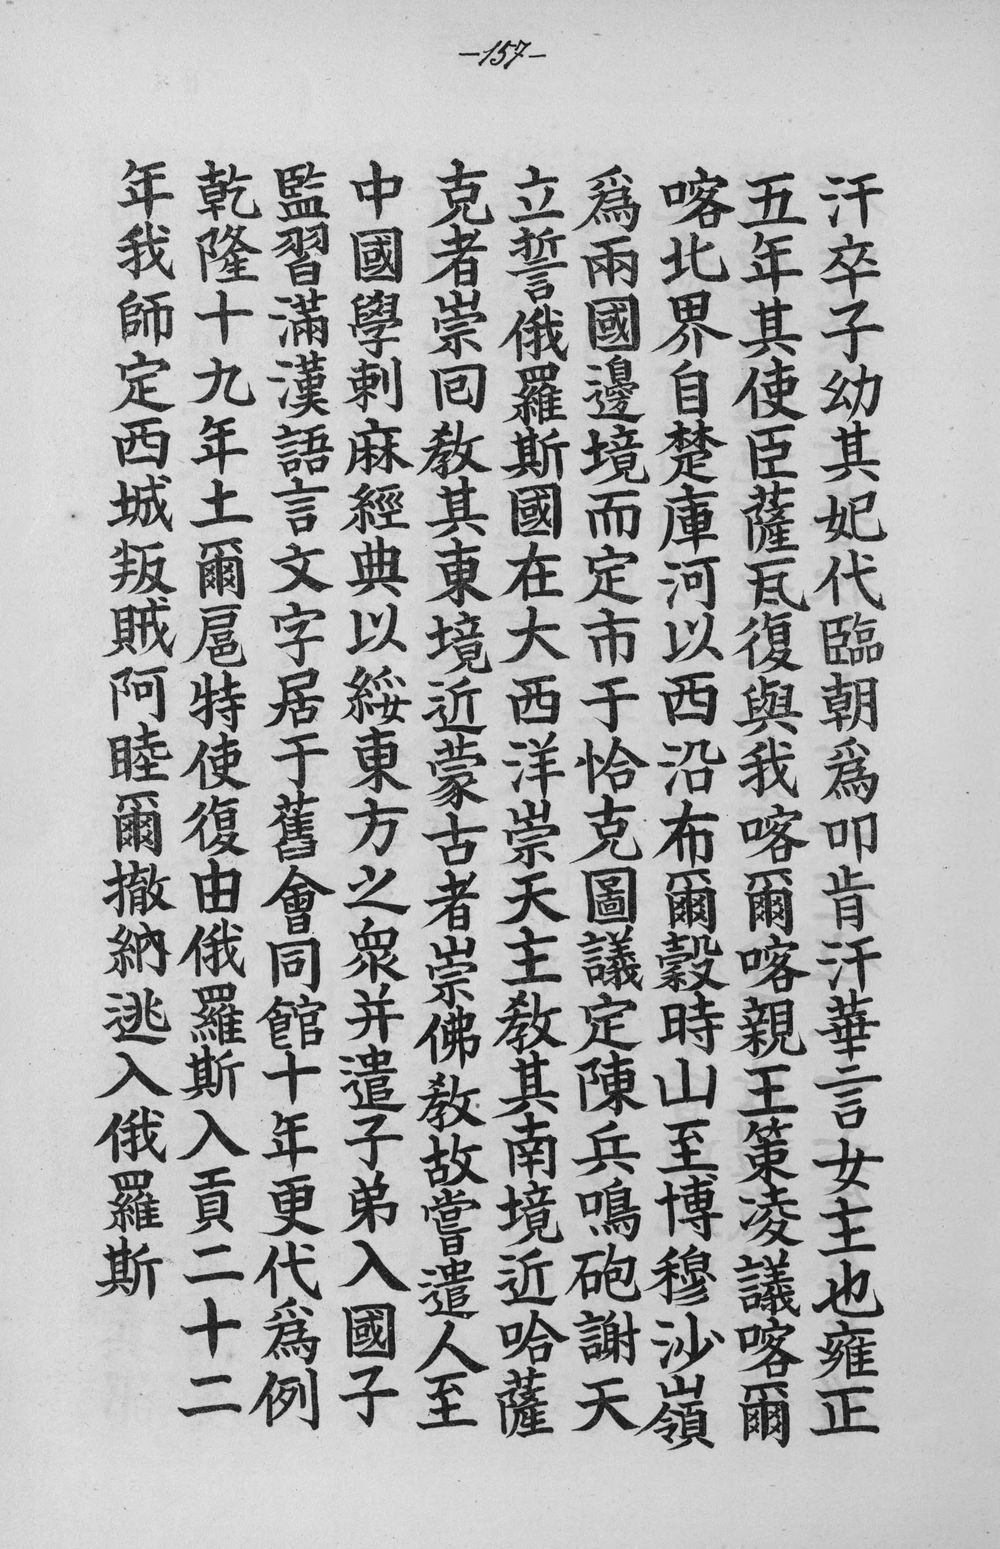 —157—
汗卒子幼其妃代臨朝爲叩肯汗華言女主也雍正
五年其使臣薩瓦復與我喀爾喀親王策凌議喀爾
喀北界自楚庫河以西沿布爾穀時山至博穆沙嶺
爲兩國邊境而定市于恰克圖議定陳兵鳴砲謝天
立誓俄羅斯國在大西洋崇天主敎其南境近哈薩
克者崇囘敎其東境近蒙古者崇佛敎故嘗遣人至
中國學剌麻經典以綏東方之衆并遣子弟入國子
監習滿漢語言文字居于舊會同館十年更代爲例
乾隆十九年土爾扈特使復由俄羅斯入貢二十二
年我師定西城叛賊阿睦爾撤納逃入俄羅斯